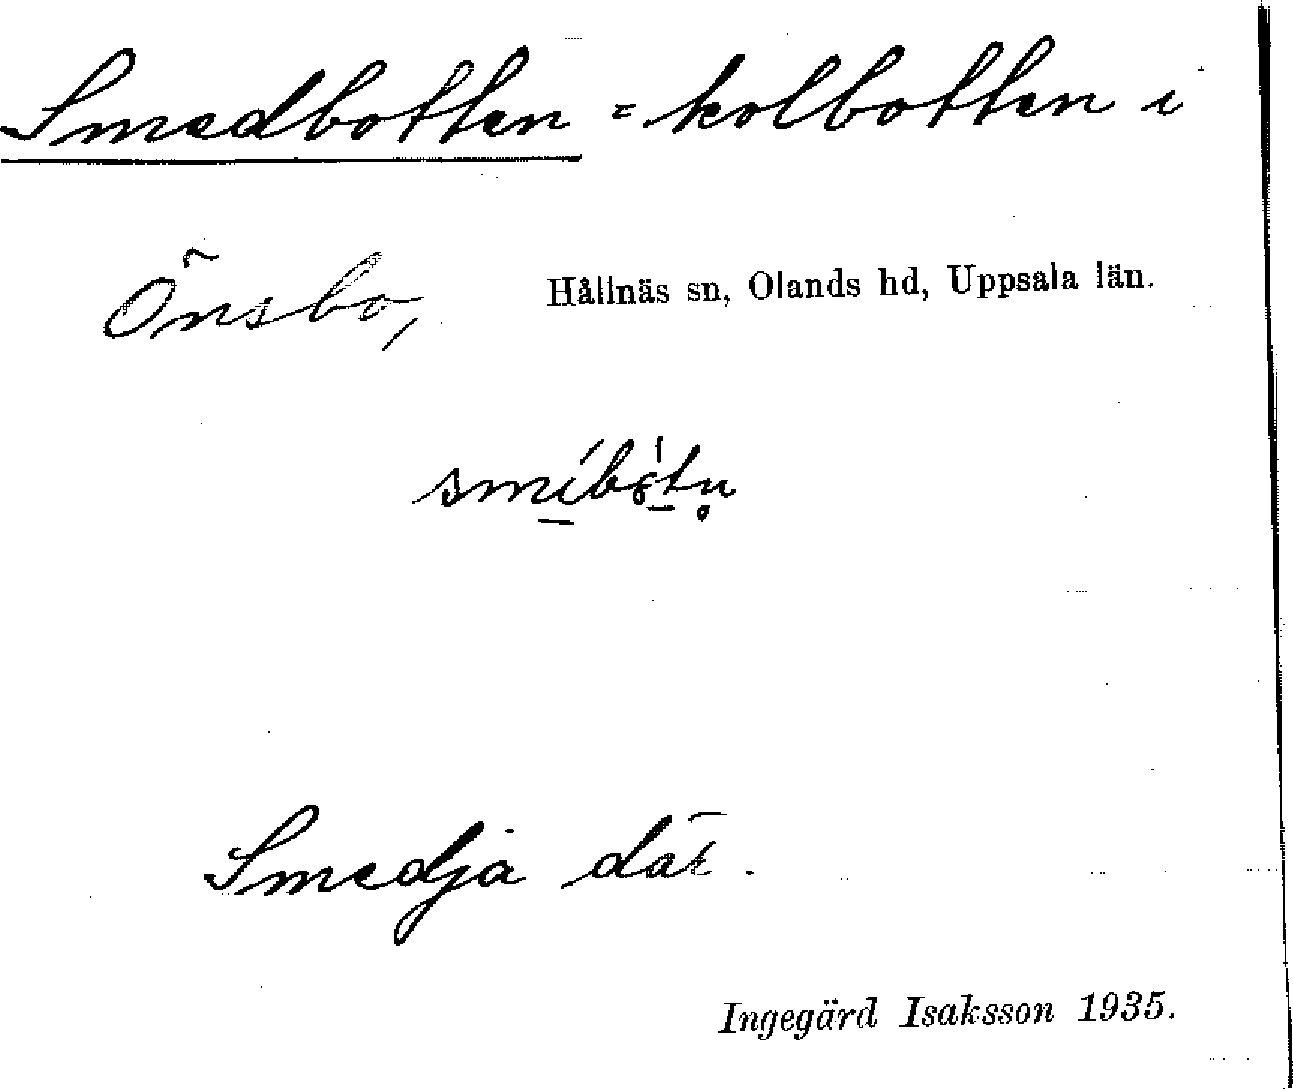 Smedbotten = kolbotten i
Önsbo, Hållnäs sn, Olands hd, Uppsala län.
Smedja där.
Ingegärd Isaksson 1935.